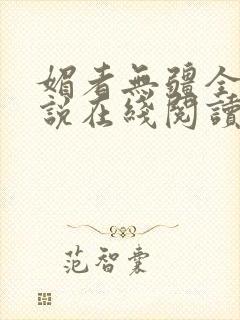 媚者無疆全
說在綫閱讀
范智囊